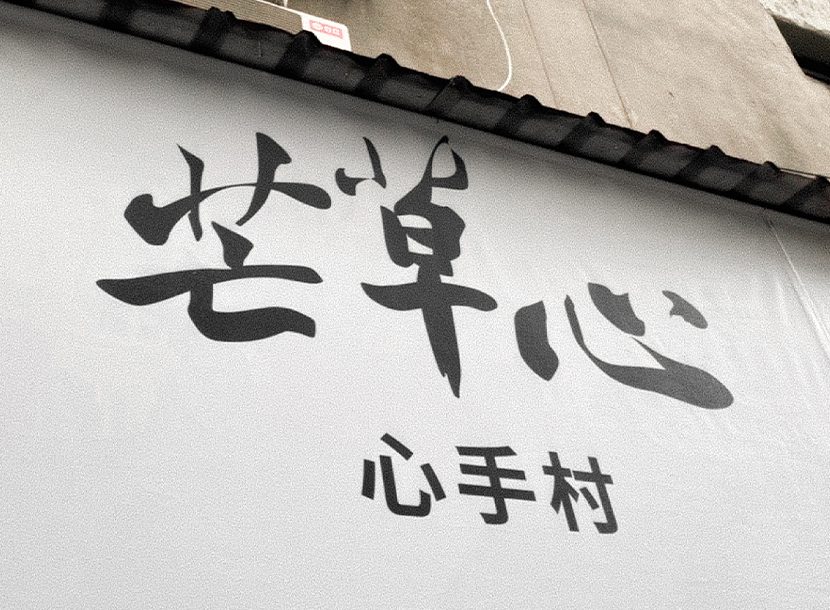 芒草心
心手村